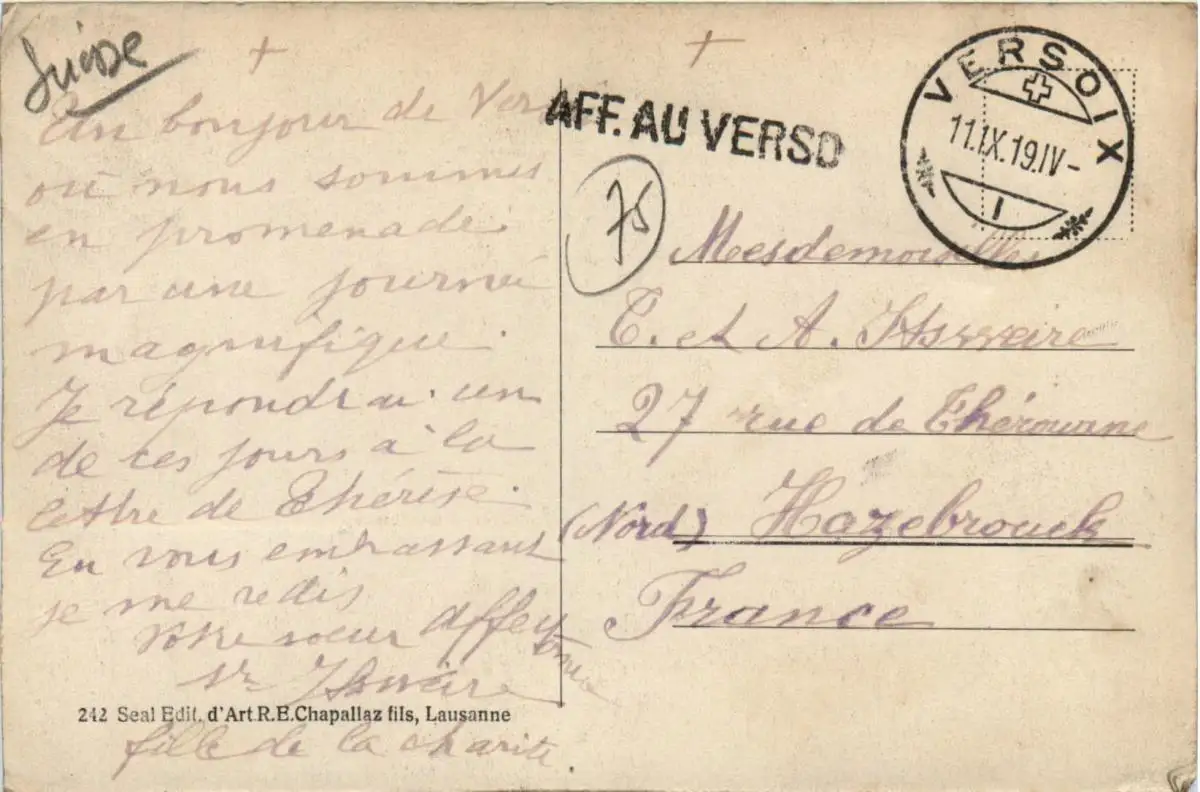 Suisse
+ +
Un bonjour de Vers
où nous sommes
en promenade
par une journée
magnifique.
Je répondrai un
de ces jours à la
lettre de Thérèse.
En vous embrassant
je me redis
Votre soeur affectionnée
Sr Itsweire
fille de la charité.
242 Seal Edit. d'Art.R.E.Chapallaz fils, Lausanne
AFF. AU VERSO
75
VERSOIX
11.IX.19.IV-
1
Mesdemoiselles
T. et A. Itsweire
27 rue de Thérouanne
(Nord) Hazebrouck
France